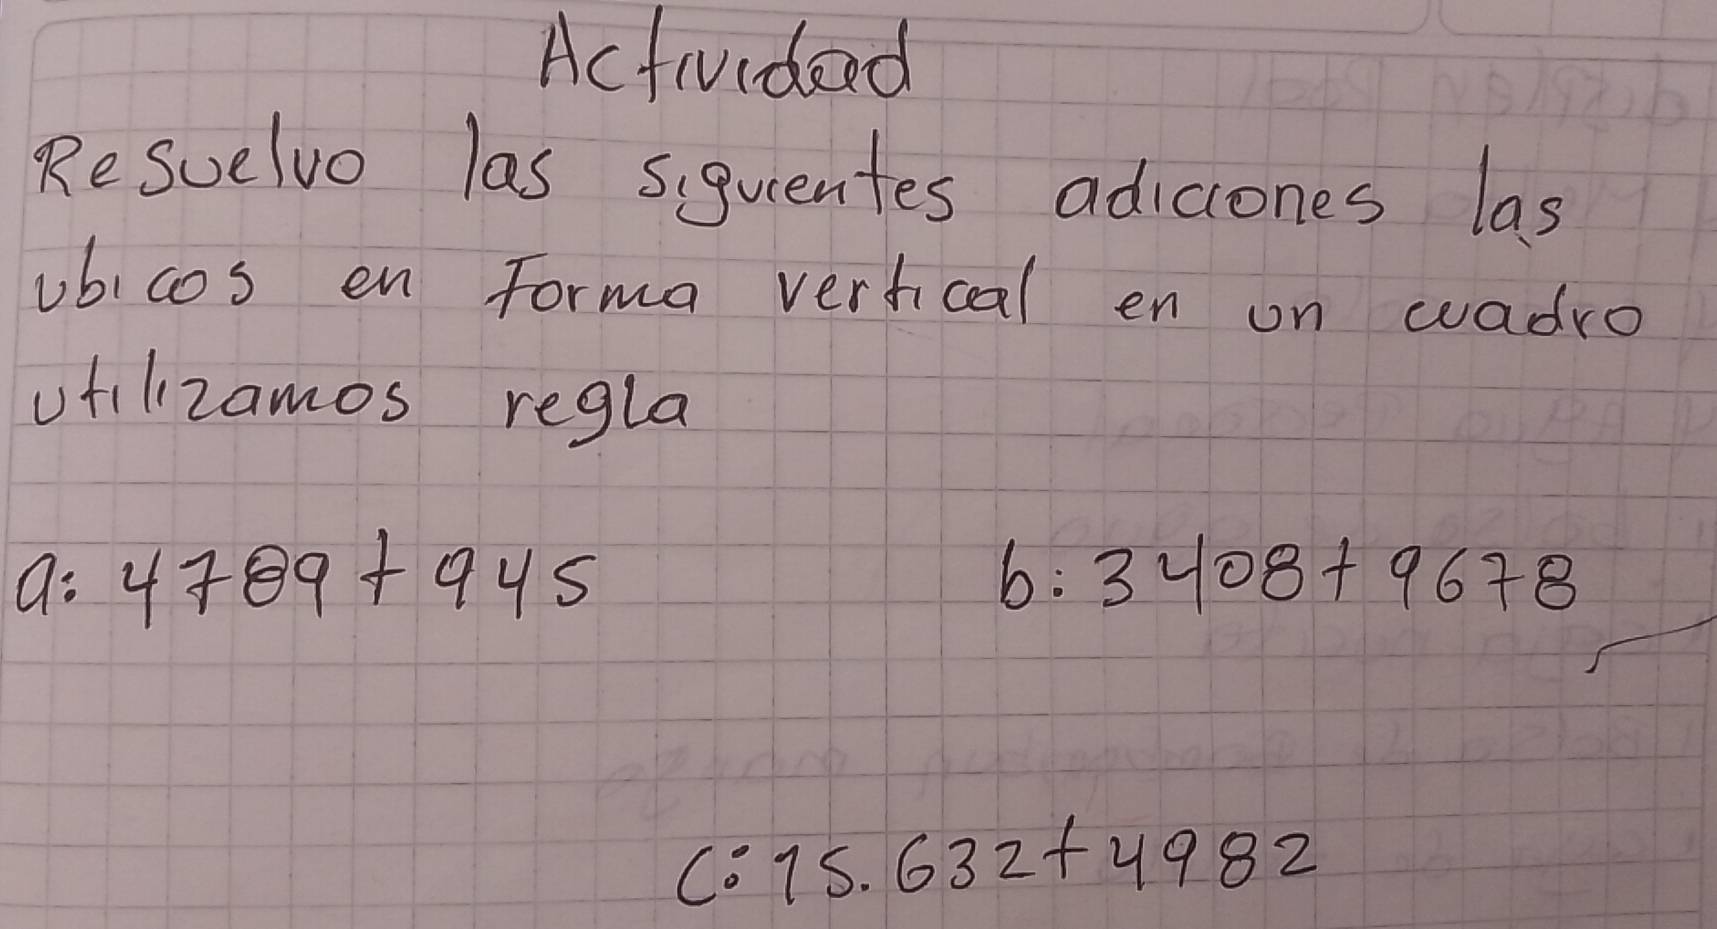 Actividad
Resuelvo las siguientes adiciones las
ubicos en forma vertical en un cuadro
utilizamos regla
a: 4789 + 945
b: 3408 + 9678
c: 15.632 + 4982